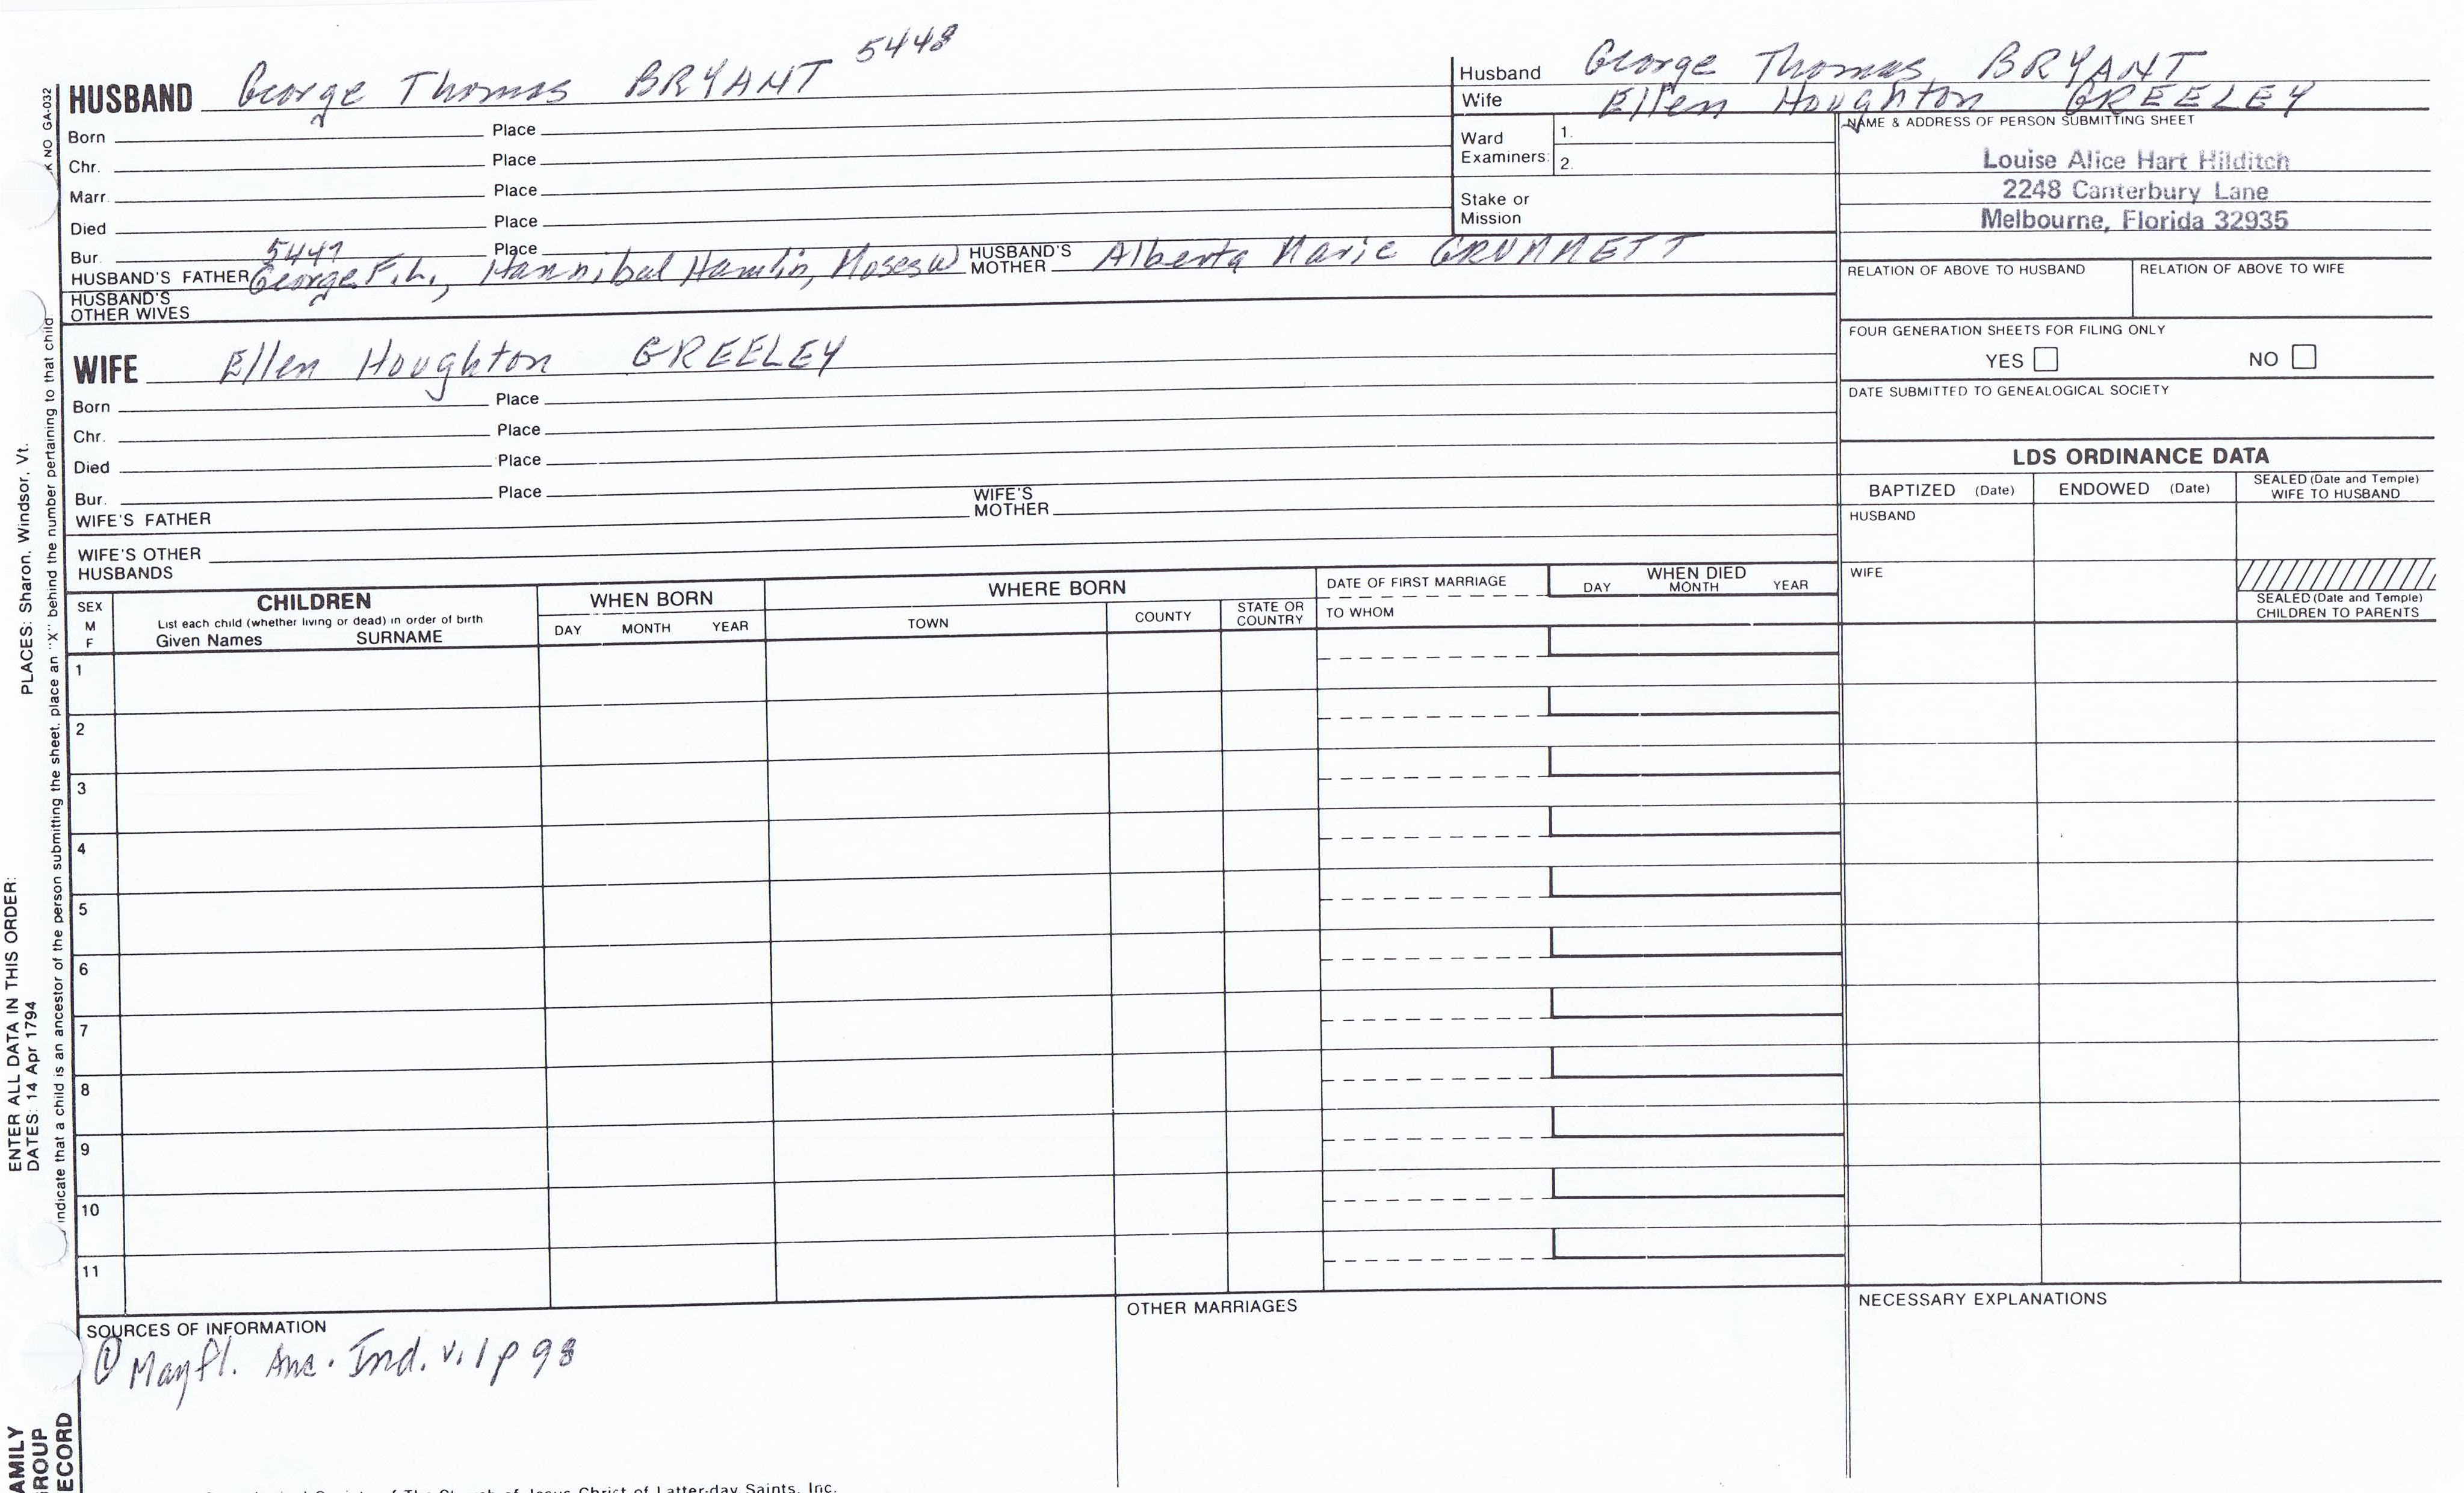 5448
HUSBAND George Thomas BRYANT
Born Place
Chr. Place
Marr. Place
Died Place
Bur. Place
5447
HUSBAND'S FATHER George F. L., Hannibal Hamlin, Moses W HUSBAND'S MOTHER Alberta Marie GRUMMETT
HUSBAND'S OTHER WIVES
WIFE Ellen Houghton GREELEY
Born Place
Chr. Place
Died Place
Bur. Place
WIFE'S FATHER WIFE'S MOTHER
WIFE'S OTHER HUSBANDS
Husband George Thomas BRYANT
Wife Ellen Houghton GREELEY
Ward Examiners: 1.
2.
Stake or Mission
NAME & ADDRESS OF PERSON SUBMITTING SHEET
Louise Alice Hart Hilditch
2248 Canterbury Lane
Melbourne, Florida 32935
RELATION OF ABOVE TO HUSBAND RELATION OF ABOVE TO WIFE
FOUR GENERATION SHEETS FOR FILING ONLY
YES NO
DATE SUBMITTED TO GENEALOGICAL SOCIETY
LDS ORDINANCE DATA
BAPTIZED (Date) ENDOWED (Date) SEALED (Date and Temple) WIFE TO HUSBAND
HUSBAND
WIFE
SEALED (Date and Temple) CHILDREN TO PARENTS
SEX M F
CHILDREN
List each child (whether living or dead) in order of birth
Given Names SURNAME
WHEN BORN
DAY MONTH YEAR
WHERE BORN
TOWN COUNTY STATE OR COUNTRY
DATE OF FIRST MARRIAGE
TO WHOM
WHEN DIED
DAY MONTH YEAR
1
2
3
4
5
6
7
8
9
10
11
SOURCES OF INFORMATION
① Mayfl. Anc. Ind. v. 1 p 98
OTHER MARRIAGES
NECESSARY EXPLANATIONS
of The Church of Jesus Christ of Latter-day Saints, Inc.
NO GA-032
indicate that a child is an ancestor of the person submitting the sheet, place an "X" behind the number pertaining to that child
ENTER ALL DATA IN THIS ORDER:
DATES: 14 Apr 1794
PLACES: Sharon, Windsor, Vt.
AMILY
ROUP
ECORD